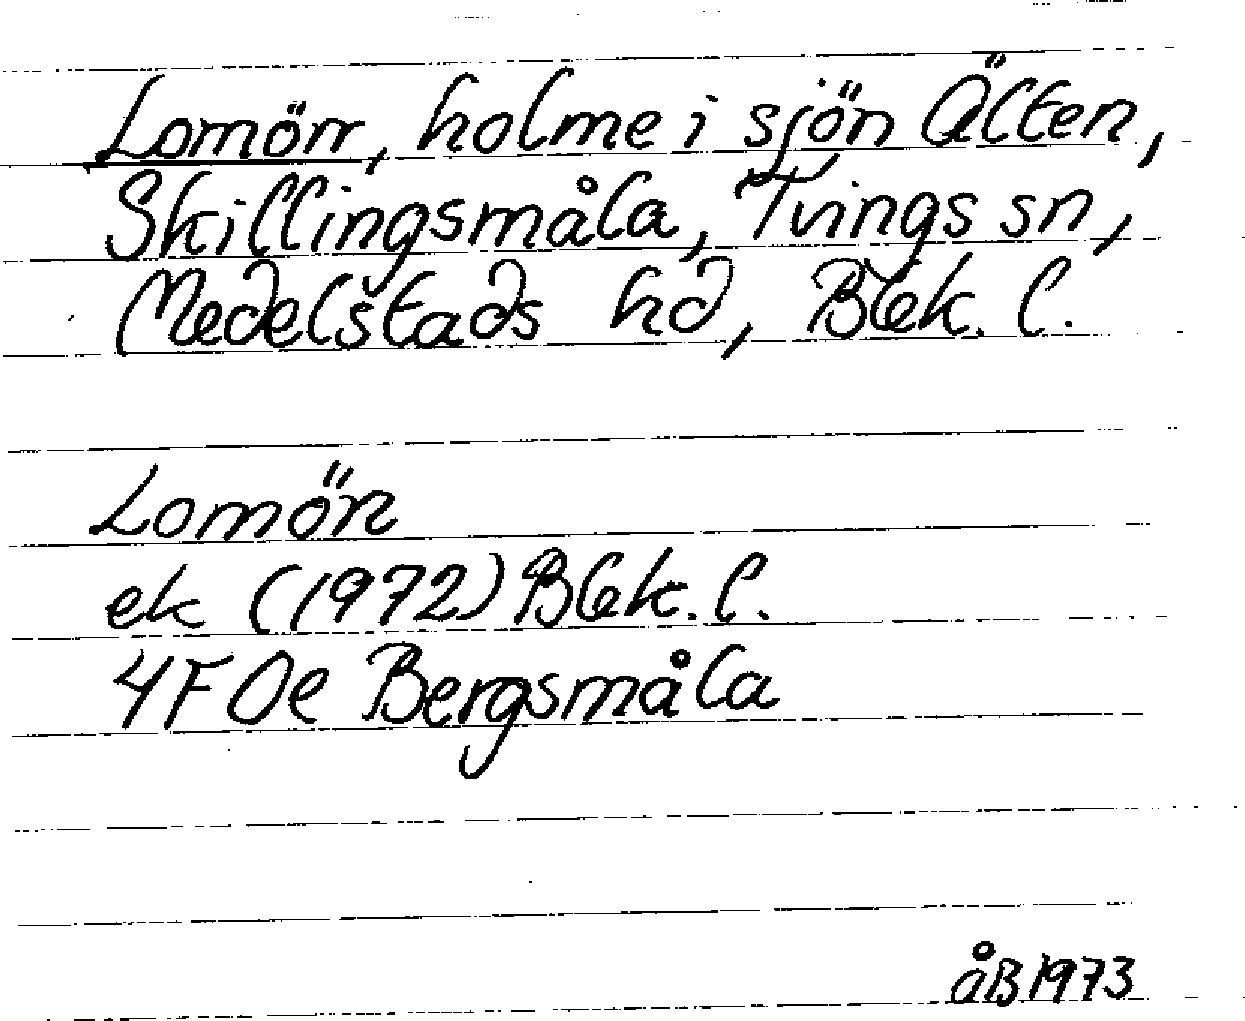 Lomön, holme i sjön Älten,
Skillingsmåla, Tvings sn,
Medelstads hd, Blek. l.
Lomön
ek (1972) Blek. l.
4F 0e Bergsmåla
åB 1973